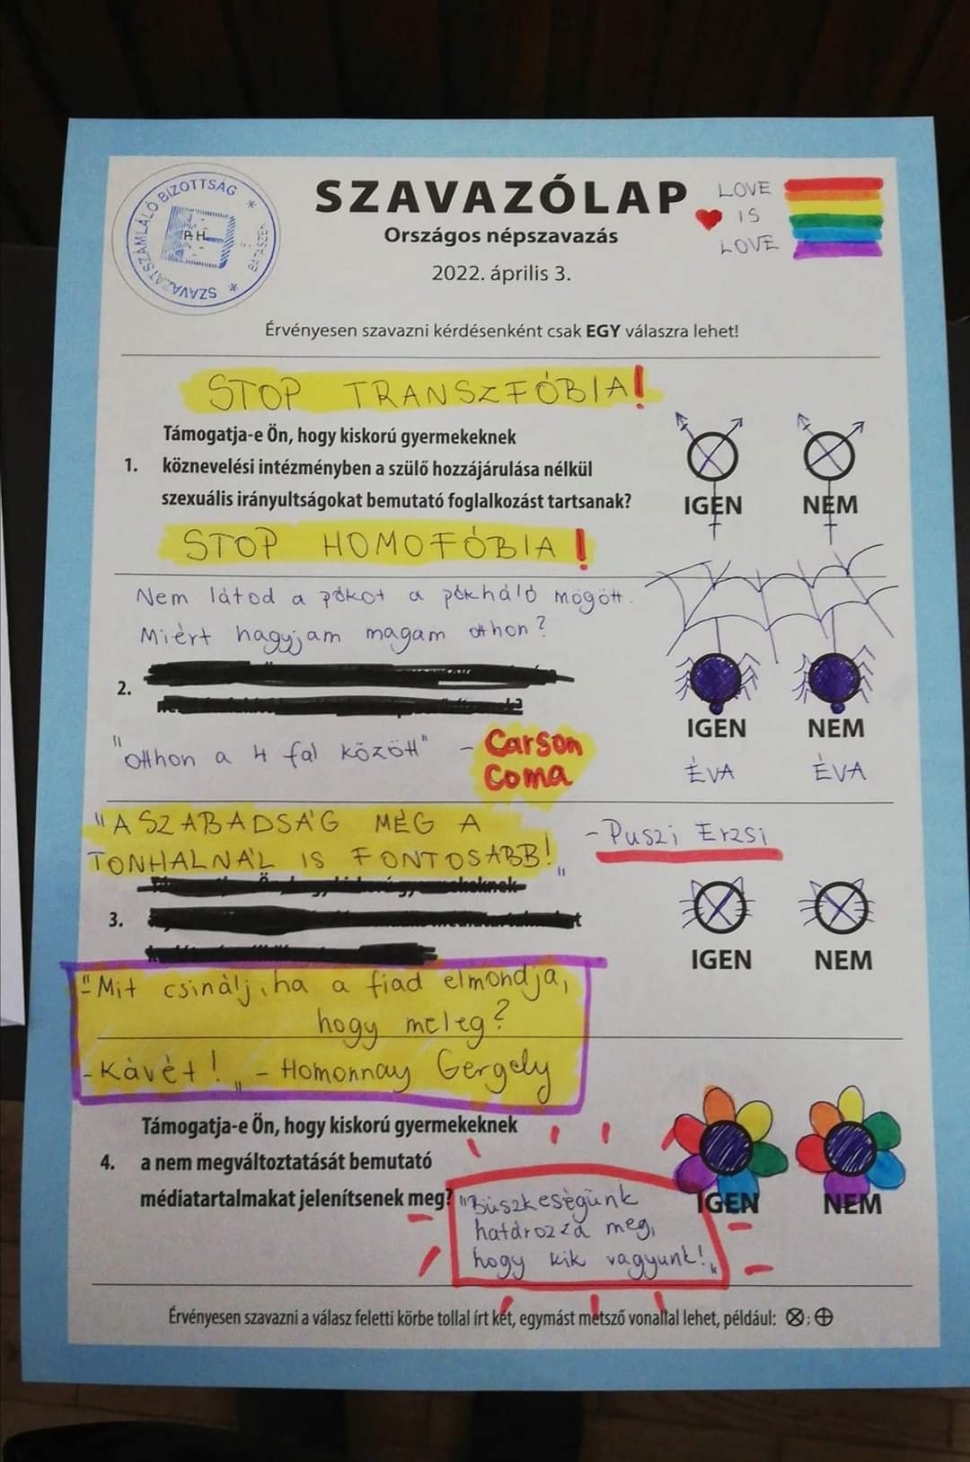 SZAVAZATSZÁMLÁLÓ BIZOTTSÁG
BÁTASZÉK
SZAVAZÓLAP
LOVE
IS
LOVE
Országos népszavazás
2022. április 3.
Érvényesen szavazni kérdésenként csak EGY válaszra lehet!
STOP TRANSZFÓBIA!
Támogatja-e Ön, hogy kiskorú gyermekeknek
1. köznevelési intézményben a szülő hozzájárulása nélkül
szexuális irányultságokat bemutató foglalkozást tartsanak?
IGEN NEM
STOP HOMOFÓBIA!
Nem látod a pókot a pókháló mögött.
Miért hagyjam magam otthon?
2.
IGEN NEM
"Otthon a 4 fal között" - Carson
Coma
ÉVA ÉVA
"A SZABADSÁG MÉG A
TONHALNÁL IS FONTOSABB!"
- Puszi Erzsi
3.
IGEN NEM
"-Mit csinálj, ha a fiad elmondja,
hogy meleg?
- Kávét!" - Homonnay Gergely
Támogatja-e Ön, hogy kiskorú gyermekeknek
4. a nem megváltoztatását bemutató
médiatartalmakat jelenítsenek meg?
IGEN NEM
"Büszkeségünk
határozza meg,
hogy kik vagyunk!"
Érvényesen szavazni a válasz feletti körbe tollal írt két, egymást metsző vonallal lehet, például: ⊗; ⊕